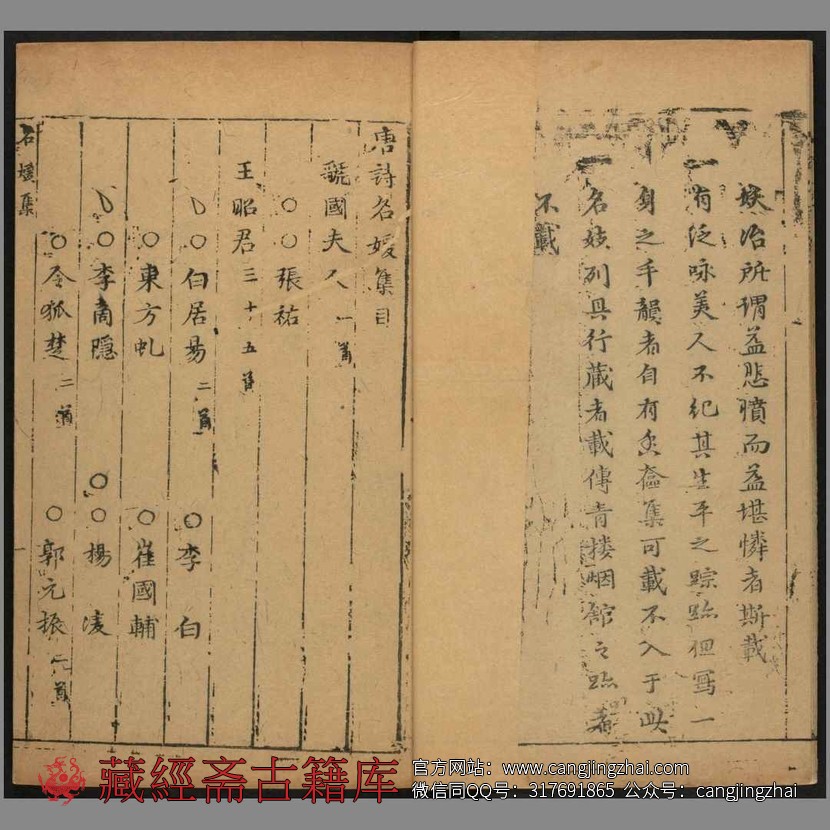 妖冶所謂益悲憤而益堪憐者斯載
一有泛咏美人不紀其生平之踪跡但寫一
身之手韻者自有香奩集可載不入于此
一名妓列具行藏者載傳青楼烟舘之跡者
不載
唐詩名媛集目
虢國夫人一首
○○張祐
王昭君三十五首
○白居易二首 ○李白
○東方虬 ○崔國輔
○李商隠 ○○楊凌
○令狐楚二首 ○郭元振 首
名媛集
藏經斋古籍库
官方网站：www.cangjingzhai.com
微信同QQ号：317691865 公众号：cangjingzhai